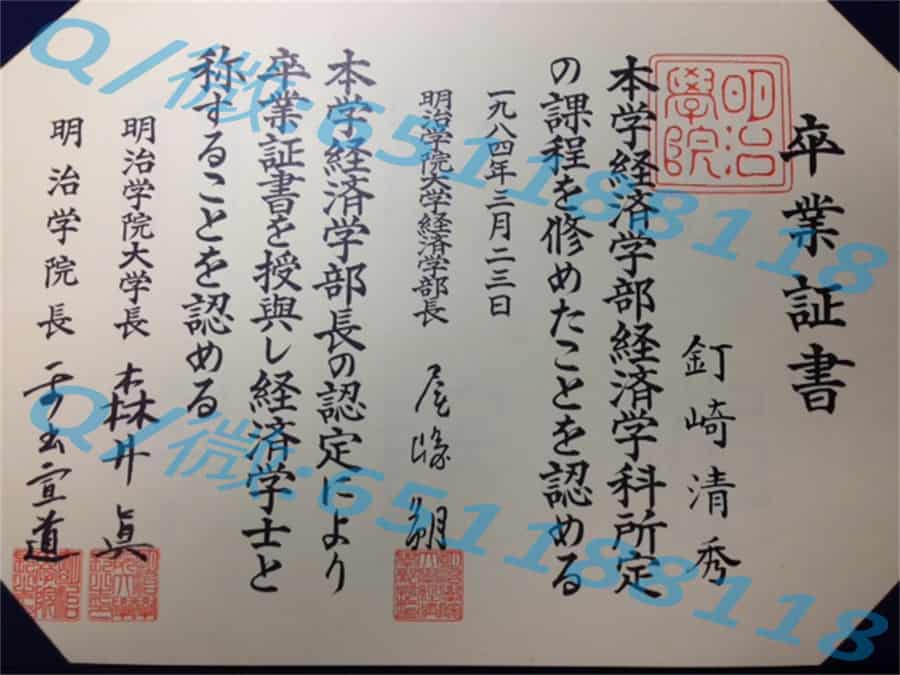 卒業証書
明治
學院
釘崎清秀
本学経済学部経済学科所定
の課程を修めたことを認める
一九八四年三月二三日
明治学院大学経済学部長
本学経済学部長の認定により
卒業証書を授與し経済学士と
称することを認める
明治学院大学長 森井眞
明治学院長
宣道
Q/微:651188118
Q/微:651188118